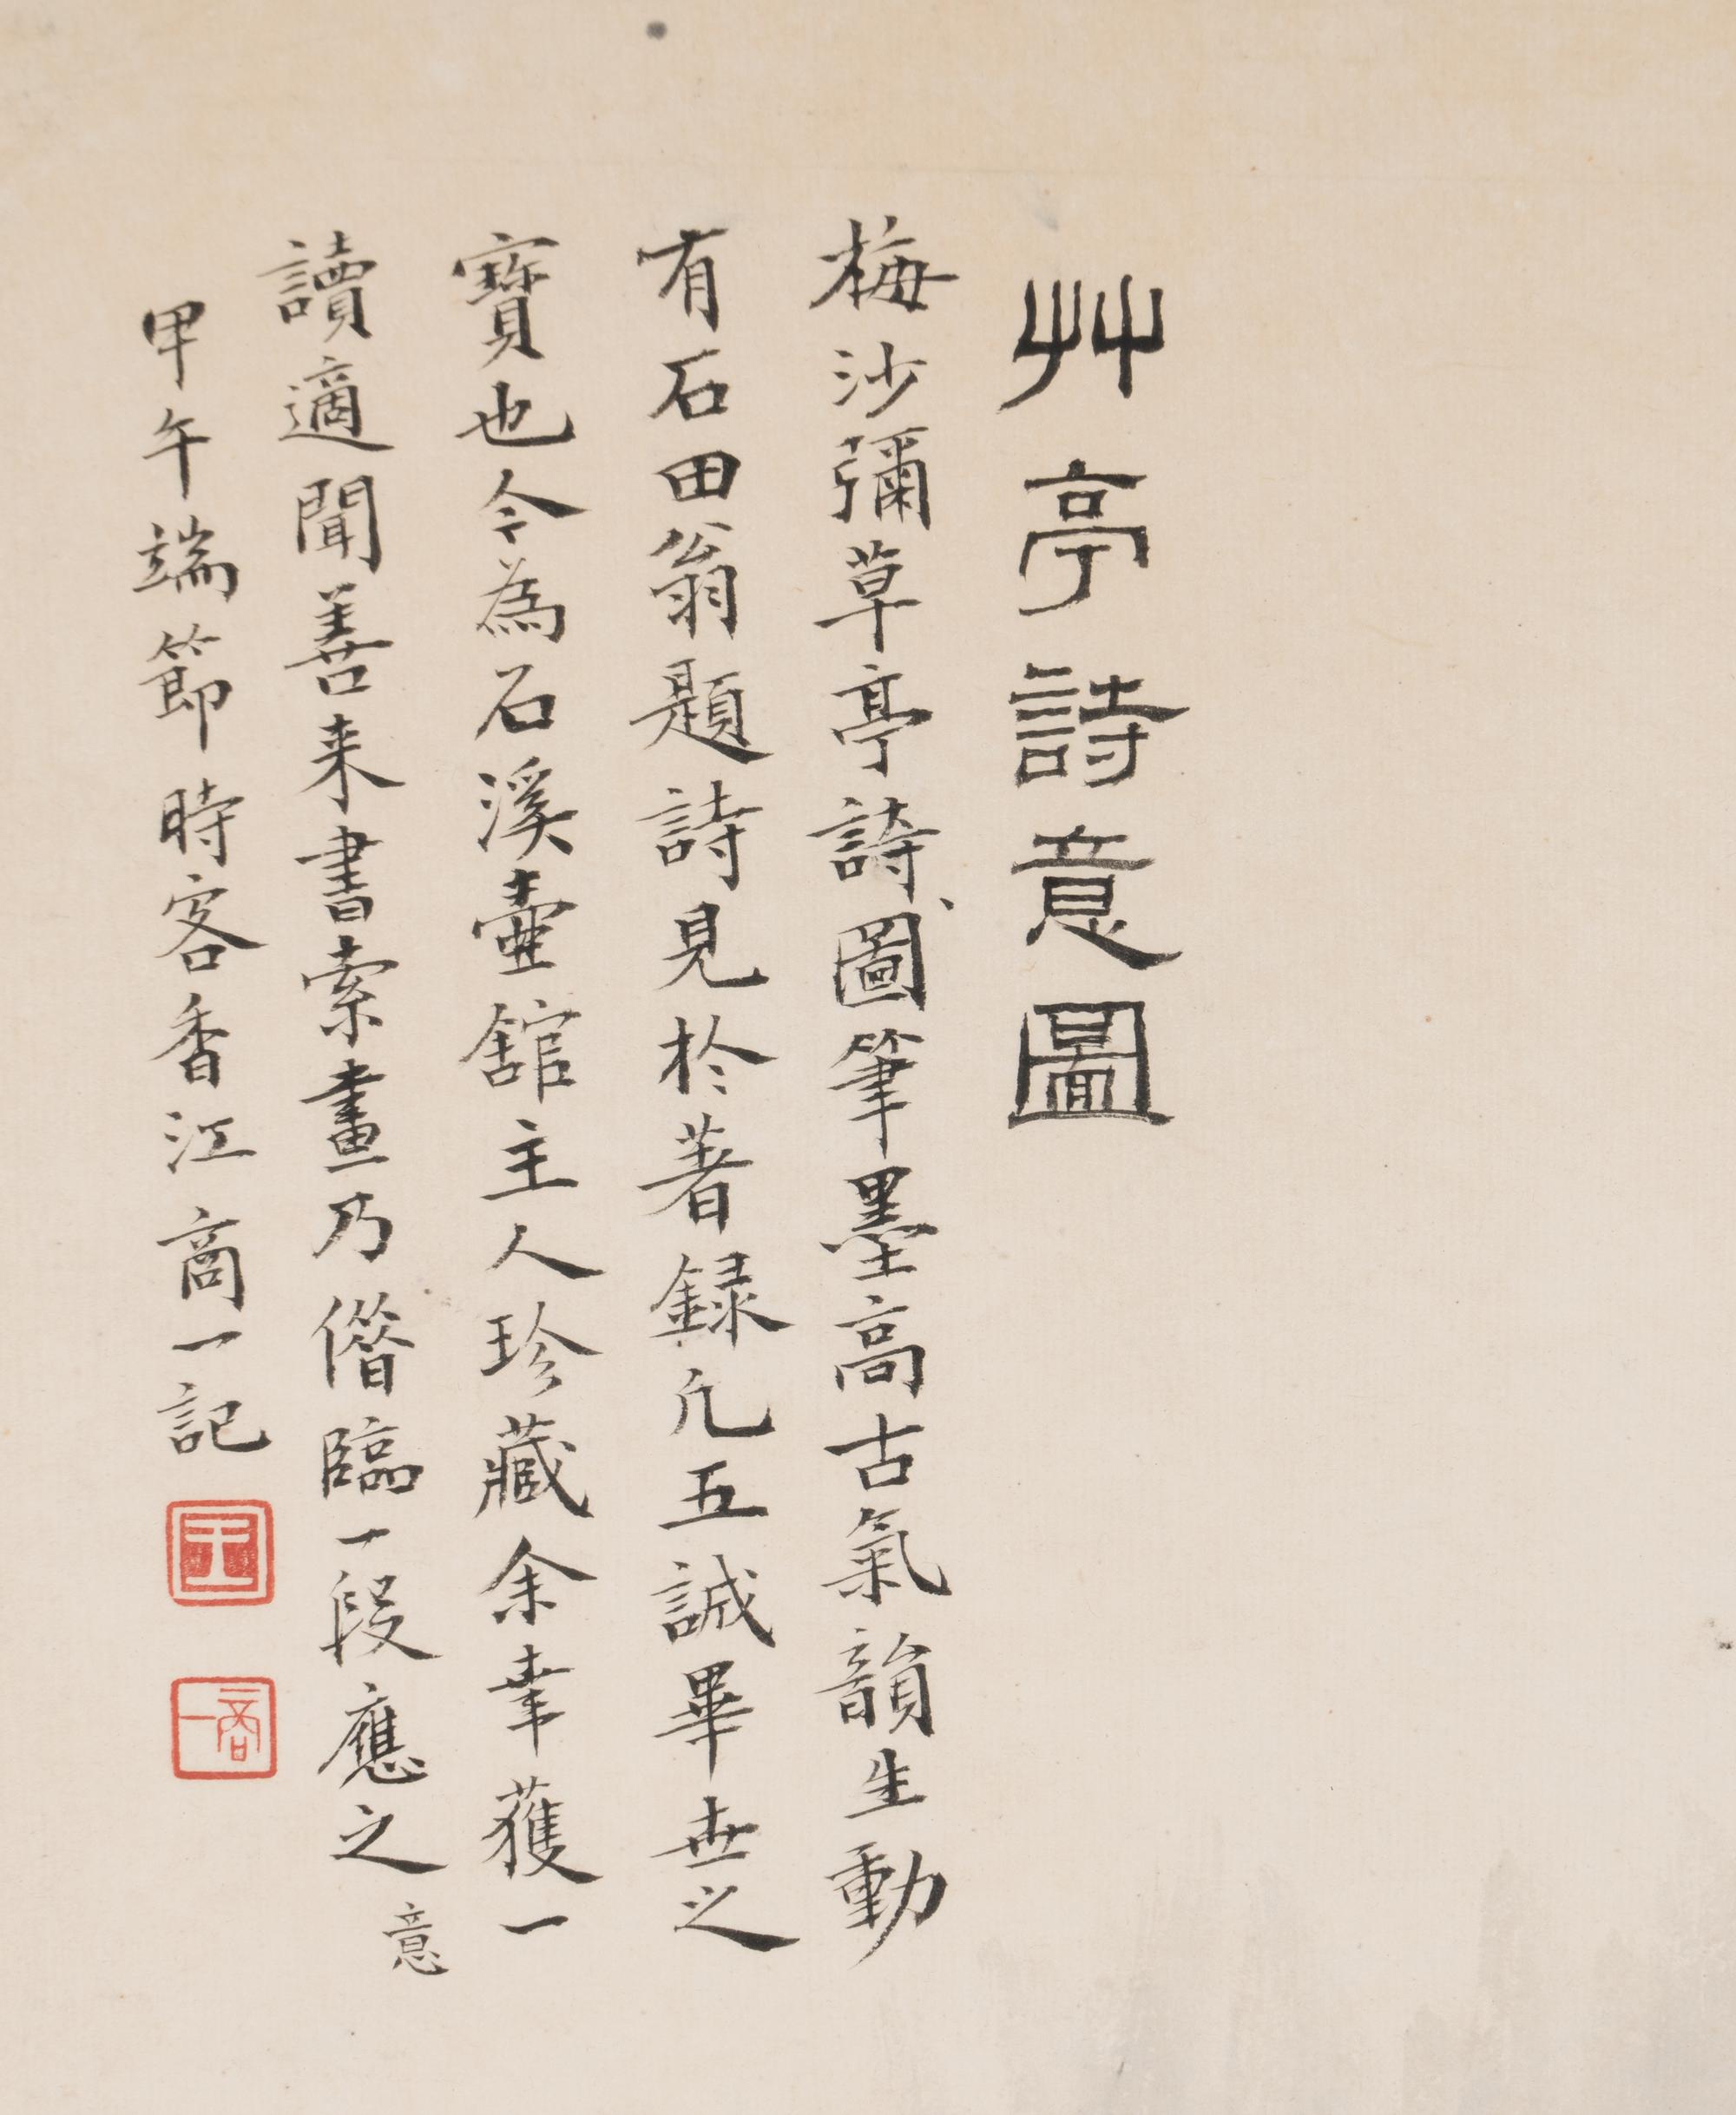 艸亭詩意圖
梅沙彌草亭詩、圖筆墨高古氣韻生動
有石田翁題詩見於著録凢五誠畢世之
寶也今為石溪壷舘主人珍藏余幸獲一
讀適聞善来書索畫乃僭臨一段應之
意
甲午端節時客香江商一記
王
商一